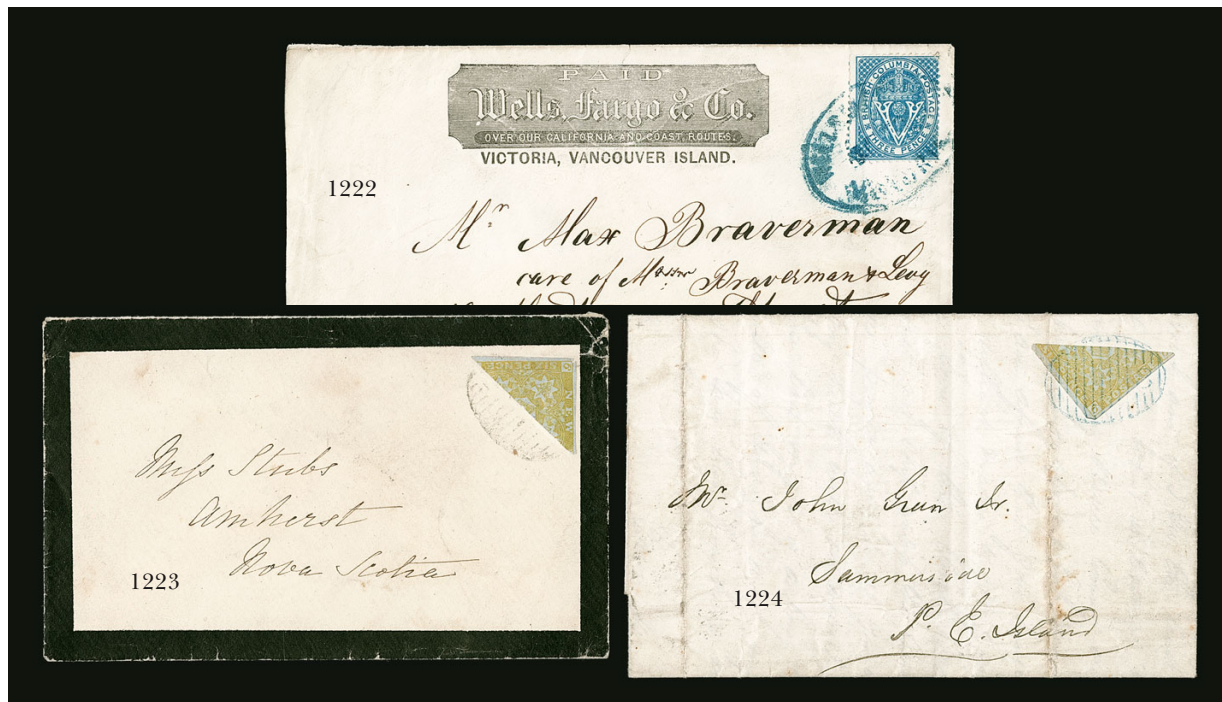 PAID
Wells, Fargo & Co.
OVER OUR CALIFORNIA AND COAST ROUTES.
VICTORIA, VANCOUVER ISLAND.
BRITISH COLUMBIA POSTAGE
THREE PENCE
V
1222
Mr. Max Braverman
care of Messrs. Braverman & Levy
SIX PENCE
NEW
Miss Stubs
Amherst
Nova Scotia
1223
Mr. John Green Jr.
Summerside
P. E. Island
1224